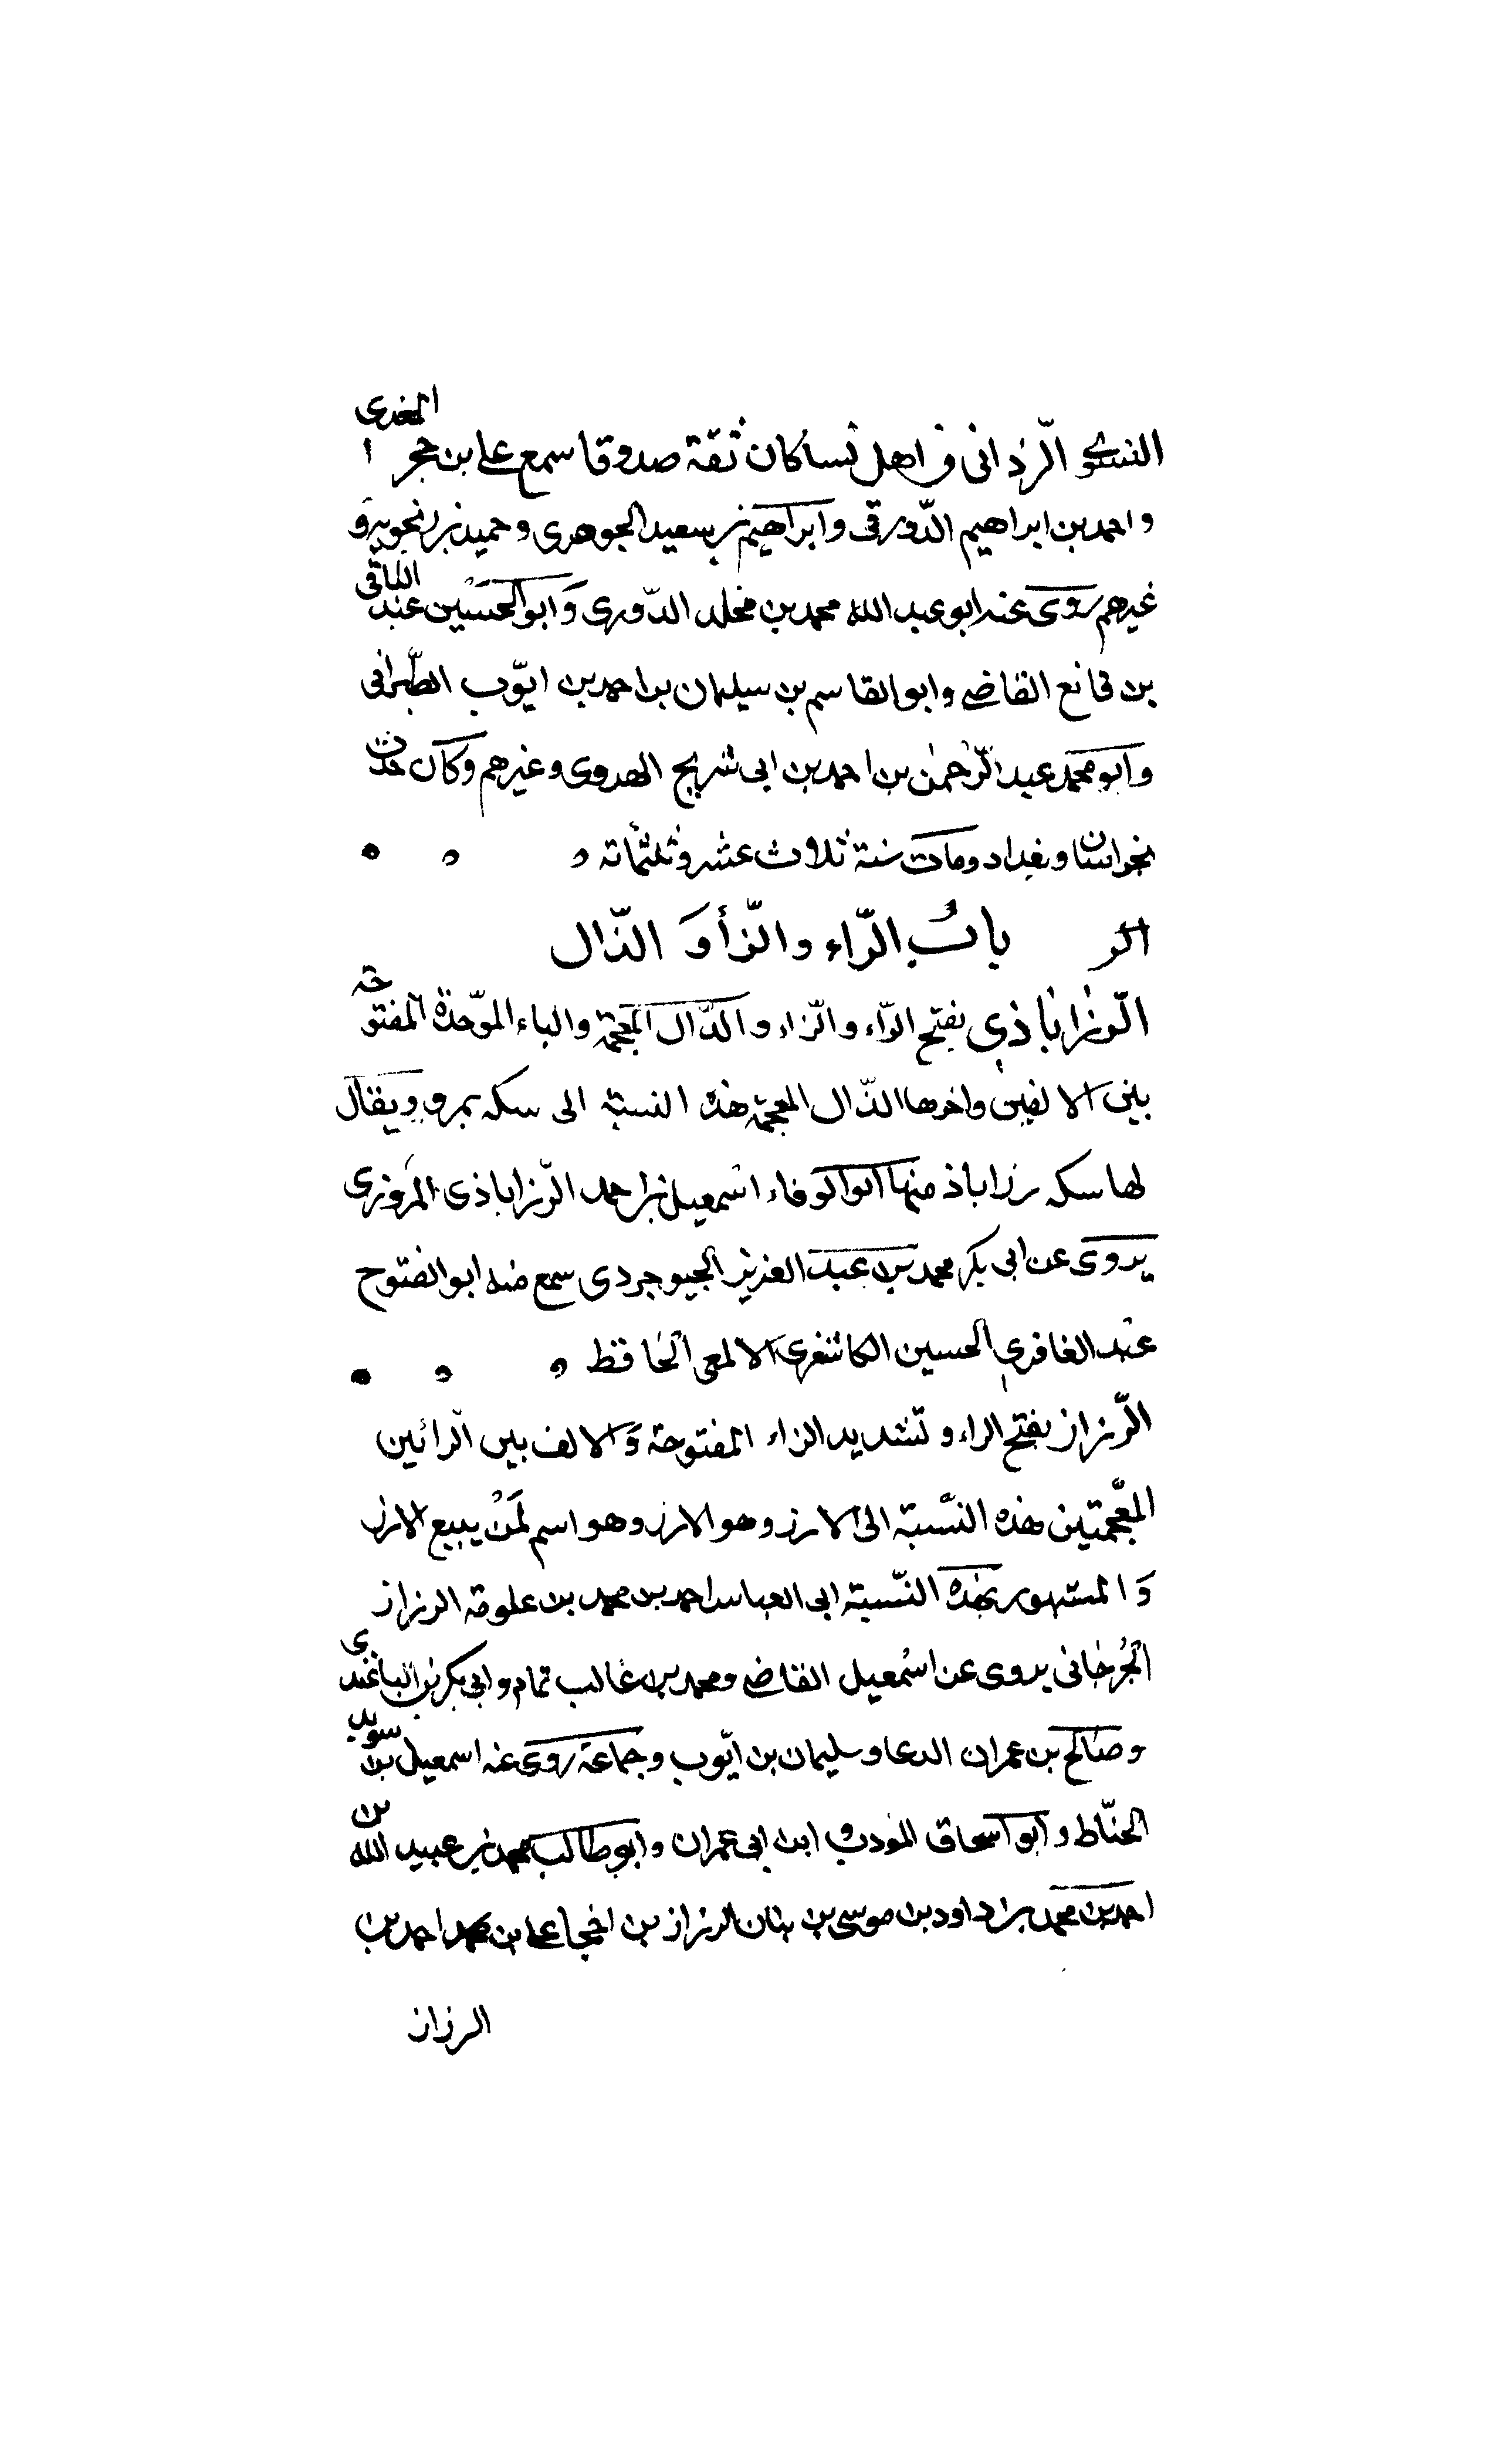 النسوي الرذاني من اهل نسا كان ثقة صدوقا سمع علي بن حجر المغدى
واحمد بن ابراهيم الدّورقى وابراهيم بن سعيد الجوهرى وحميد بن زنجويه و
غيرهم روى عنه ابو عبد الله محمد بن مخلد الدّورى وَابو الحسَيْن عبد الباقى
بن قانع القاضى وابو القاسم بن سليمان بن احمد بن ايّوب الطّبرانى
وابو محمد عبد الرّحمن بن احمد بن ابى شريح الهروى وغيرهم وكان حدث
بخراسان وبغداد ومات سنة ثلاث عشر وثلثمائه
بابُ الرّاء والزّأ وَ الذّال
الرّزاباذي بفتح الرّاء والزّاء والذّال المعجمة والباء الموّحدة المفتوحة
بين الالفين واخرها الذّال المعجمة هذه النسبة الى سكه بمرو ويقال
لها سكه رزاباذ منها ابو الوفاء اسمعيل بن احمد الرّزاباذى المروزى
يروى عن ابى بكر محمد بن عبد العزيز الجيوجردى سمع منه ابو الفتوح
عبد الغافر بن الحسين الكاشغرى الالمعى الحافظ
الرّزاز بفتح الراء وتشديد الزاء المفتوحة وَالالف بين الزائين
المعّجمتين هذه النسّبة الى الارز وهو الارز وهو اسم لمَنْ يبيع الارز
وَ المشهور بهذه النّسبة ابى العباس احمد بن محمد بن علوقة الرزاز
الجُرجانى يروى عن اسْمعيل القاضى ومحمد بن غالب تمام وابى بكر بن الباغندى
وصالح بن عمران الدعا وسليمان بن ايّوب وجماعة روى عنه اسمعيل بن سويد
الحنّاط وابو اسحاق المؤدب ابن ابى عمران وابو طالب محمد بن عبيد الله بن
احمد بن محمد بن داود بن موسى بن بنان الرزاز بن اخى على بن محمد احمد بن
الرزاز